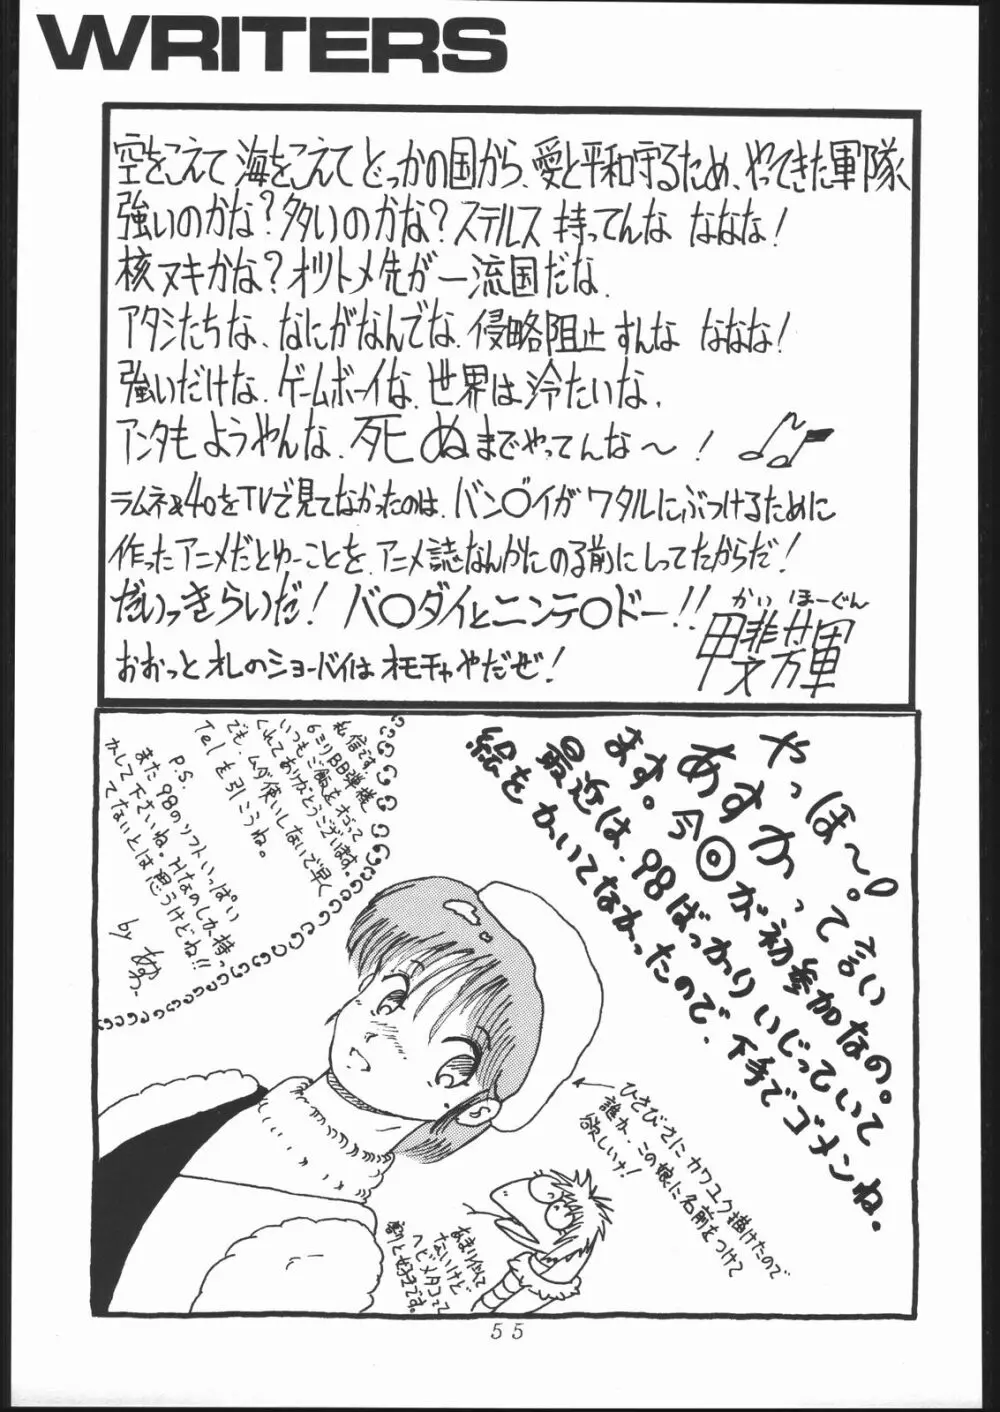 WRITERS
空をこえて 海をこえて どっかの国から、愛と平和守るため、やってきた軍隊
強いのかな？多いのかな？ステルス 持ってんな ななな！
核ヌキかな？オリトメ先が一流国だな、
アタシたちな、なにがなんでな、侵略阻止すんな ななな！
強いだけな、ゲームボーイな、世界は冷たいな、
アンタもようやんな、死ぬまでやってんな〜！
ラムネ&40をTVで見てなかったのは、バン○イがワタルにぶつけるために
作ったアニメだとゆーことを、アニメ誌なんかにのる前にしってたからだ！
だいっきらいだ！バ○ダイとニンテ○ドー！！
おおっとオレのショーバイはオモチャやだぜ！
かい ほーぐん
甲斐芳軍
やっほ〜！
あすか。って言い
ます。今回が初参加なの。
最近は、98ばっかりいじっていて
絵をかいてなかったので、下手でゴメンね。
私信です。
6ミリBB弾様
いつもご飯をおごって
くれてありがとうございます。
でも、ムダ使いしないで早く
Telを引こうね。
P.S.
また98のソフトいっぱい
かして下さいね。Hなのしか持っ
てないとは思うけどね!!
by あすか。
ひさびさに カワユク描けたので
誰か、この娘に名前をつけて
欲しいナ！
あまり似て
ないけど
ヘビメタコって
割と好きです。
55